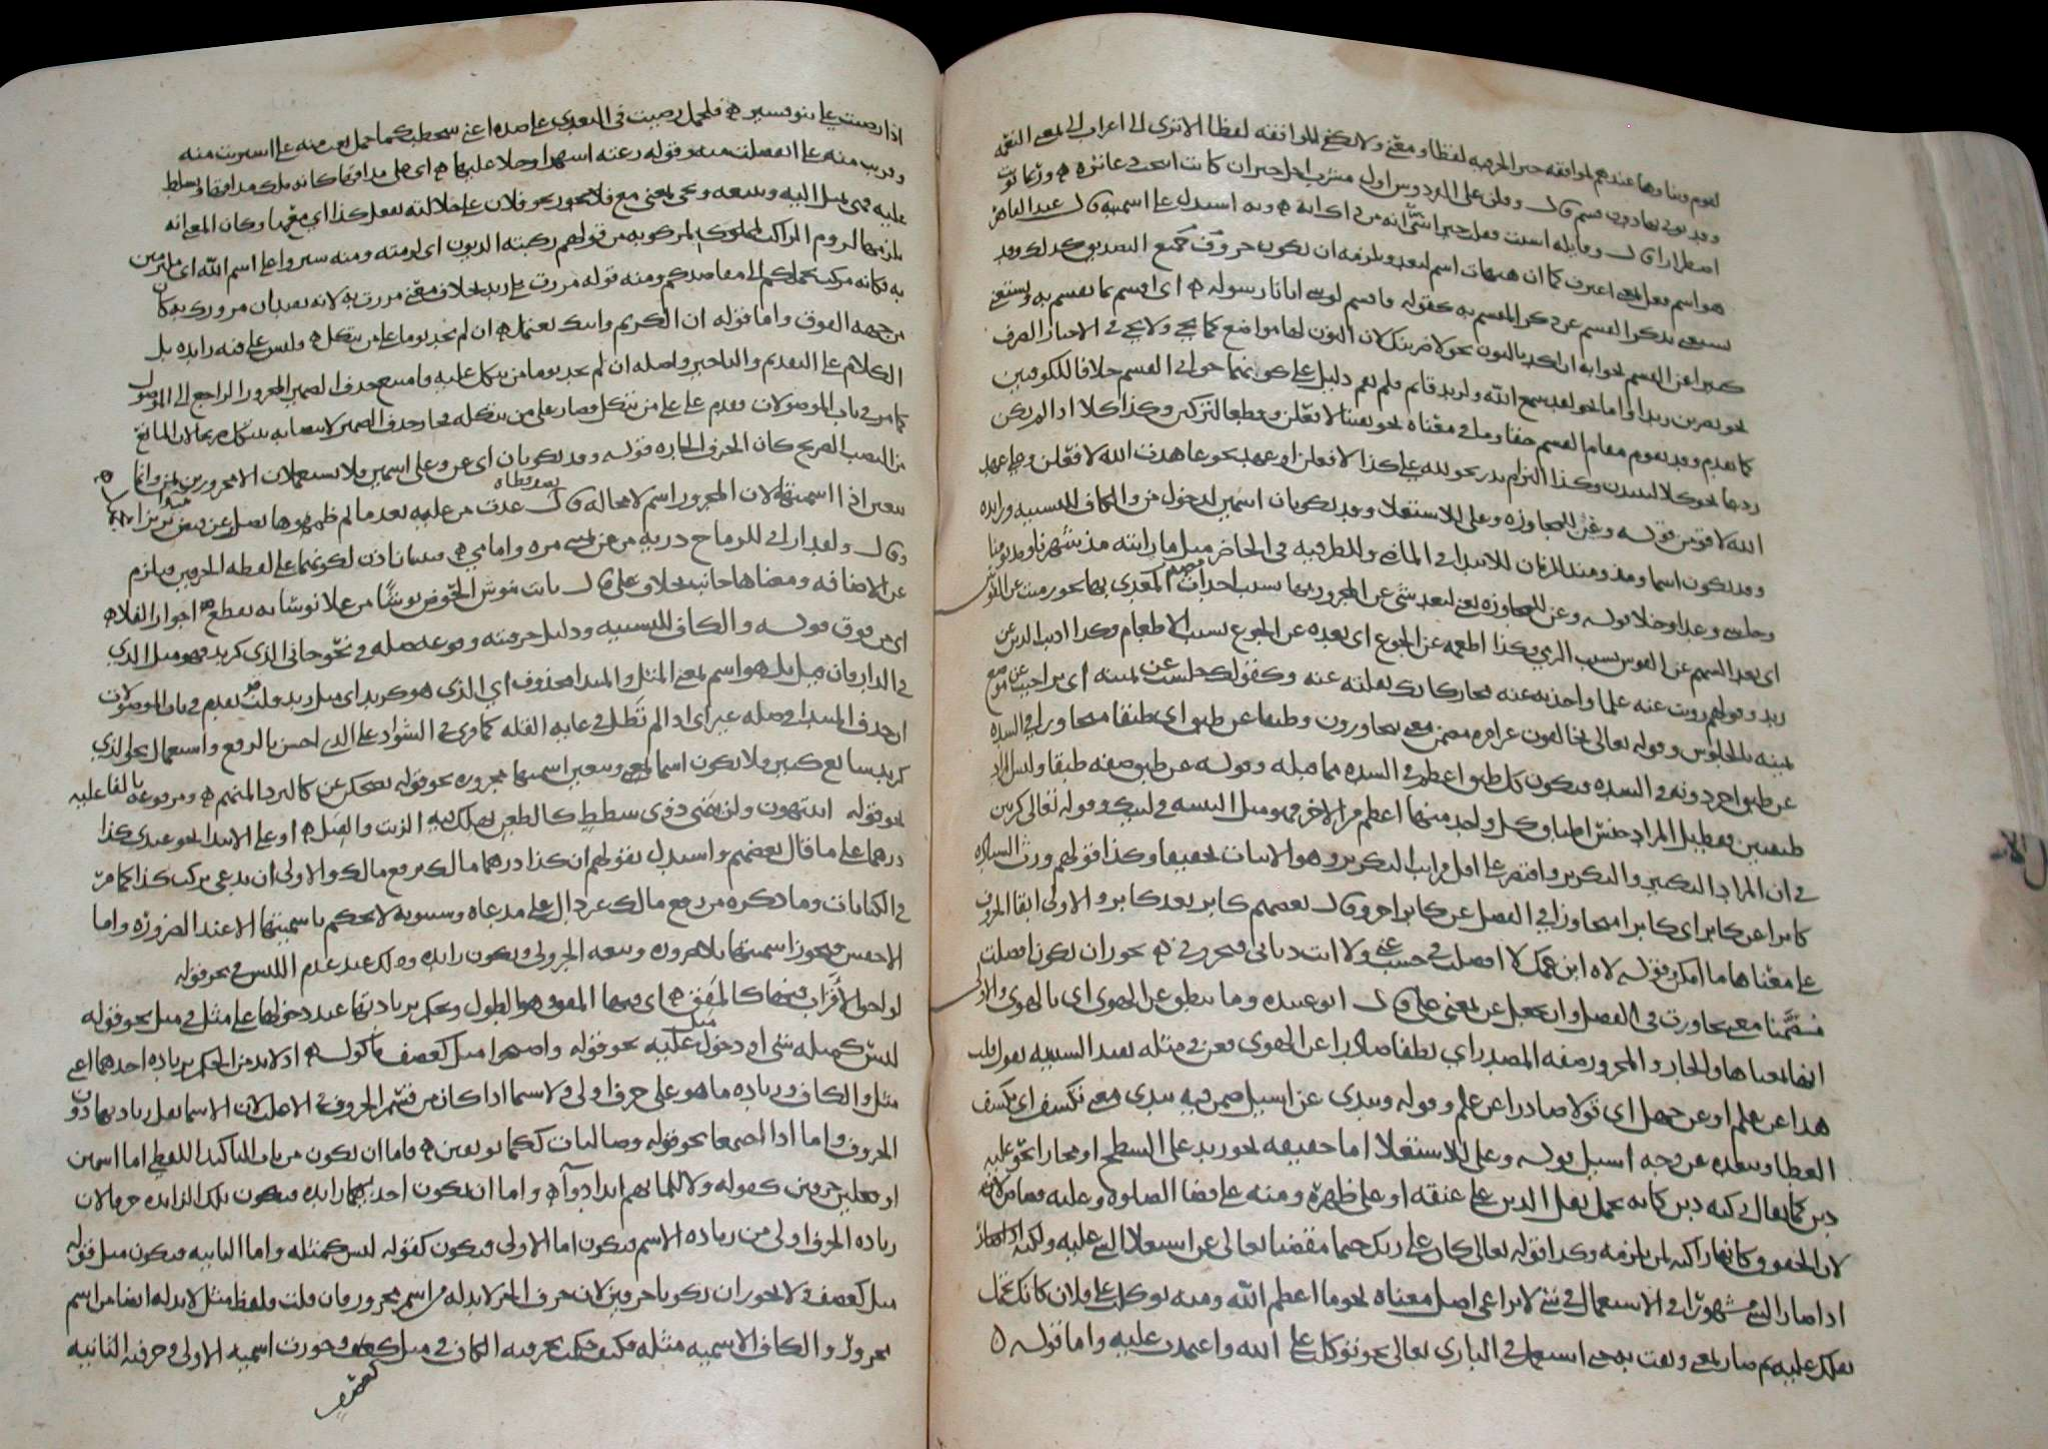 لقوم وبناؤها عندهم لموافقه حبر الحرفيه لفظا ومعنى ولا يكفى الموافقه لفظا الا ترى الى اعراب الى بمعنى النعمه
وقد يوتى بها دون قسم قال وقلن على الفردوس اول مشرب اجل جير ان كانت ابيحت دعاثره ه وربما نونت
اضطرارا قال وقايله اسيت فقلت جير اسى انه من ذاك انه ه وبه استدل على اسميته وقال عبد القاهر
هو اسم فعل بمعنى اعترف كما ان هيهات اسم لبعد ويلزمه ان يكون حروف جميع التصديق كذلك وقد
يستغنى بذكر القسم عن ذكر المقسم به كقوله فاقسم لو شى اتانا رسوله ه اى اقسم بما يقسم به ويستغنى
كثيرا عن القسم بجوابه ان اكد بالنون نحو لاضربنك لان النون لها مواضع كما يجى ولا يجى فى الاخبار الصرف
نحو يضربن زيد واما نحو لقد سمع الله ولزيد قائم فلم يقم دليل على كونهما جوابى القسم خلافا للكوفيين
كما تقدم وقد يقوم مقام القسم حقا وما فى معناه نحو يقينا لافعلن وقطعا لتذكرن وكذا كلا اذا لم يكن
ردعا نحو كلا لينبذن وكذا التزام نذر نحو لله على كذا لافعلن او عهد نحو عاهدت الله لافعلن وعلى عهد
الله لاقومن قوله وعن للمجاوزه وعلى للاستعلا وقد يكونان اسمين لدخول من والكاف للتشبيه وزايده
وقد يكون اسما ومذ ومنذ للزمان للابتدا فى الماضى وللظرفيه فى الحاضر مثل ما رايته مذ شهرنا ومنذ يومنا
وحاشا وعدا وخلا قوله وعن للمجاوزه يعنى لبعد شى عن المجرور بها بسبب احداث مصدر المعدى بها نحو رميت عن القوس
اى بعد السهم عن القوس بسبب الرمى وكذا اطعمه عن الجوع اى بعده عن الجوع بسبب الاطعام وكذا اديت الدين عن
زيد وقولهم رويت عنه علما واخذته عنه مجاز كانك نقلته عنه وكقولك جلست عن يمينه اى تراخيت عن موضع
يمينه بالجلوس وقوله تعالى يخالفون عن امره مضمن معنى يتجاوزون وطبقا عن طبق اى طبقا متجاوزا فى الشده
عن طبق اخر دونه فى الشده فيكون كل طبق اعظم فى الشده مما قبله وقوله عن طبق صفه طبقا وليس المراد
طبقين فقط بل المراد جنس اطباق كل واحد منها اعظم من الاخر فهو مثل التثنيه فى لبيك وقوله تعالى كرتين
فى ان المراد التكثير والتكرير واقتصر على اقل مراتب التكرير وهو الاثنان تخفيفا وكذا قولهم ورث السياده
كابرا عن كابر اى كابرا متجاوزا فى الفضل عن كابر اخر وقال بعضهم كابر بعد كابر والاولى ابقا الحروف
على معناها ما امكن وقوله لاه ابن عمك لا افضلت فى حسب عنى ولا انت ديانى فتخزونى ه يجوز ان يكون افضلت
مضمنا معنى تجاوزت فى الفضل وان يجعل عن بمعنى على قال ابو عبيده وما ينطق عن الهوى اى بالهوى والاولى
انها بمعناها والجار والمجرور صفه المصدر اى نطقا صادرا عن الهوى فعن فى مثله تفيد السببيه تقول قلت
هذا عن علم او عن جهل اى قولا صادرا عن علم وقوله وتبدى عن اسيل ضمن فيه تبدى معنى تكشف اى تكشف
الغطا وتبعده عن وجه اسيل قوله وعلى للاستعلا اما حقيقه نحو زيد على السطح او مجازا نحو عليه
دين كما يقال ركبه دين كانه تحمل ثقل الدين على عنقه او على ظهره ومنه على قضا الصلوه وعليه القصاص لانه
لان الحقوق كانها راكبه لمن تلزمه وكذا قوله تعالى كان على ربك حتما مقضيا تعالى عن استعلا شى عليه ولكنه
اذا صار الشى مشهورا فى الاستعمال فى شى لا يراعى اصل معناه نحو ما اعظم الله ومنه توكلت على فلان كانك تحمل
ثقلك عليه ثم صار بمعنى وثقت به حتى استعمل فى البارى تعالى نحو توكلت على الله واعتمدت عليه واما قوله ه
اذا رضيت على بنو قشير ه فلحمل رضيت فى التعدى على ضده اعنى سخطت كما حمل بعت منه على اشتريت منه
وقربت منه على انفصلت منه وقوله رعته اشهرا وخلا عليها ه اى على مذاقها كانه ملك مذاقها وتسلط
عليه فهى تميل اليه وتتبعه ويجى بمعنى مع فلا يجوز نحو فلان على جلالته يفعل كذا اى معها وكان المعنى انه
يلزمها لزوم الراكب لمركوبه من قولهم ركبته الديون اى لزمته ومنه سيروا على اسم الله اى ملتزمين
به فكانه مركب يحملكم الى مقاصدكم ومنه قوله مررت على زيد بخلاف معنى مررت به لانه يفيد ان مرورك به كان
من جهه الفوق واما قوله ان الكريم وابيك يعتمل ه ان لم يجد يوما على من يتكل ه وليس على فيه زايده بل
الكلام على التقديم والتاخير واصله ان لم يجد يوما من يتكل عليه فامتنع حذف الضمير المجرور الراجع الى الموصول
كما مر فى باب الموصولات فقدم على على من يتكل فصار على من يتكله فجاز حذف الضمير لانتصابه
من النصب الصريح كان الحرف الجاره قوله وقد يكونان اى عن وعلى اسمين فلا يستعملان الا مجرورين بمن وانما
يتعين اذا اسميتهما لان المجرور اسم لا محاله قال غدت من عليه بعد ما تم ظمؤها تصل وعن قيض
وقال ولقد ارانى للرماح دريه من عن يمينى مره وامامى ه فيبنيان اذن لكونهما على لفظه الحرفين فيلزم
عن الاضافه ومعناها جانب بخلاف على قال باتت تنوش الحوض نوشا من علا نوشا به تقطع اجواز الفلاه
اى من فوق قوله والكاف للتشبيه ودليل حرفيته وقوعه صله فى نحو جانى الذى كزيد فهو مثل الذى
فى الدار فان قيل بل هو اسم بمعنى المثل والمبتدا محذوف اى الذى هو كزيد اى مثل زيد قلت قد تقدم فى باب الموصولات
ان حذف المبتدا فى صله غير اى اذا لم تطل فى غايه القله كما قرى فى الشواذ على الذى احسن بالرفع واستعمال نحو الذى
كزيد شائع كثير فلا يكون اسما بمعنى ويتعين اسميتها مجروره نحو قوله يضحكن عن كالبرد المنهم ه ومرفوعه بالفاعليه
نحو قوله اتنتهون ولن ينهى ذوى شطط كالطعن يهلك فيه الزيت والفتل ه او على الابتدا نحو عندى كذا
درهما على ما قال بعضهم واستدل بقولهم ان كذا درهما مالك برفع مالك والاولى ان يدعى تركيب كذا كما مر
فى الكنايات وما ذكره من رفع مالك غير دال على مدعاه وسيبويه لا يحكم باسميتها الا عند الضروره واما
الاخفش فيجوز اسميتها بلا ضروره وتبعه الجزولى ويكون زايده وذلك عند عدم اللبس فى نحو قوله
لواحق الاقراب فيها كالمقق ه اى فيها المقق وهو الطول ويحكم بزيادتها عند دخولها على مثل فى مثل نحو قوله
ليس كمثله شى او دخول مثل عليه نحو قوله واصبحوا مثل كعصف ماكول ه اذ لابد من الحكم بزياده احدهما اعنى
مثل والكاف وزياده ما هو على حرف اولى ولا سيما اذا كان من قسم الحروف فى الاصل لان الاسما يقل زيادتها دون
الحروف واما اذا اجتمعا نحو قوله وصاليات ككما يوثفين ه فاما ان يكون من باب التاكيد اللفظى اما اسمين
او حرفين كقوله ولا للما بهم ابدا دوا ه واما ان يكون احديهما زايده فيكون تلك الزايده حرفا لان
زياده الحرف اولى من زياده الاسم فيكون اما الاولى فيكون كقوله ليس كمثله واما الثانيه فيكون مثل قوله
مثل كعصف ولا يجوز ان تكونا حرفين لان حرف الجر لابد له من اسم مجرور فان قلت فلفظ مثل لابد له ايضا من اسم
مجرور والكاف الاسميه مثله فكيف حكمت بحرفيه الكاف فى مثل كعصف وجوزت اسميه الاولى وحرفيه الثانيه